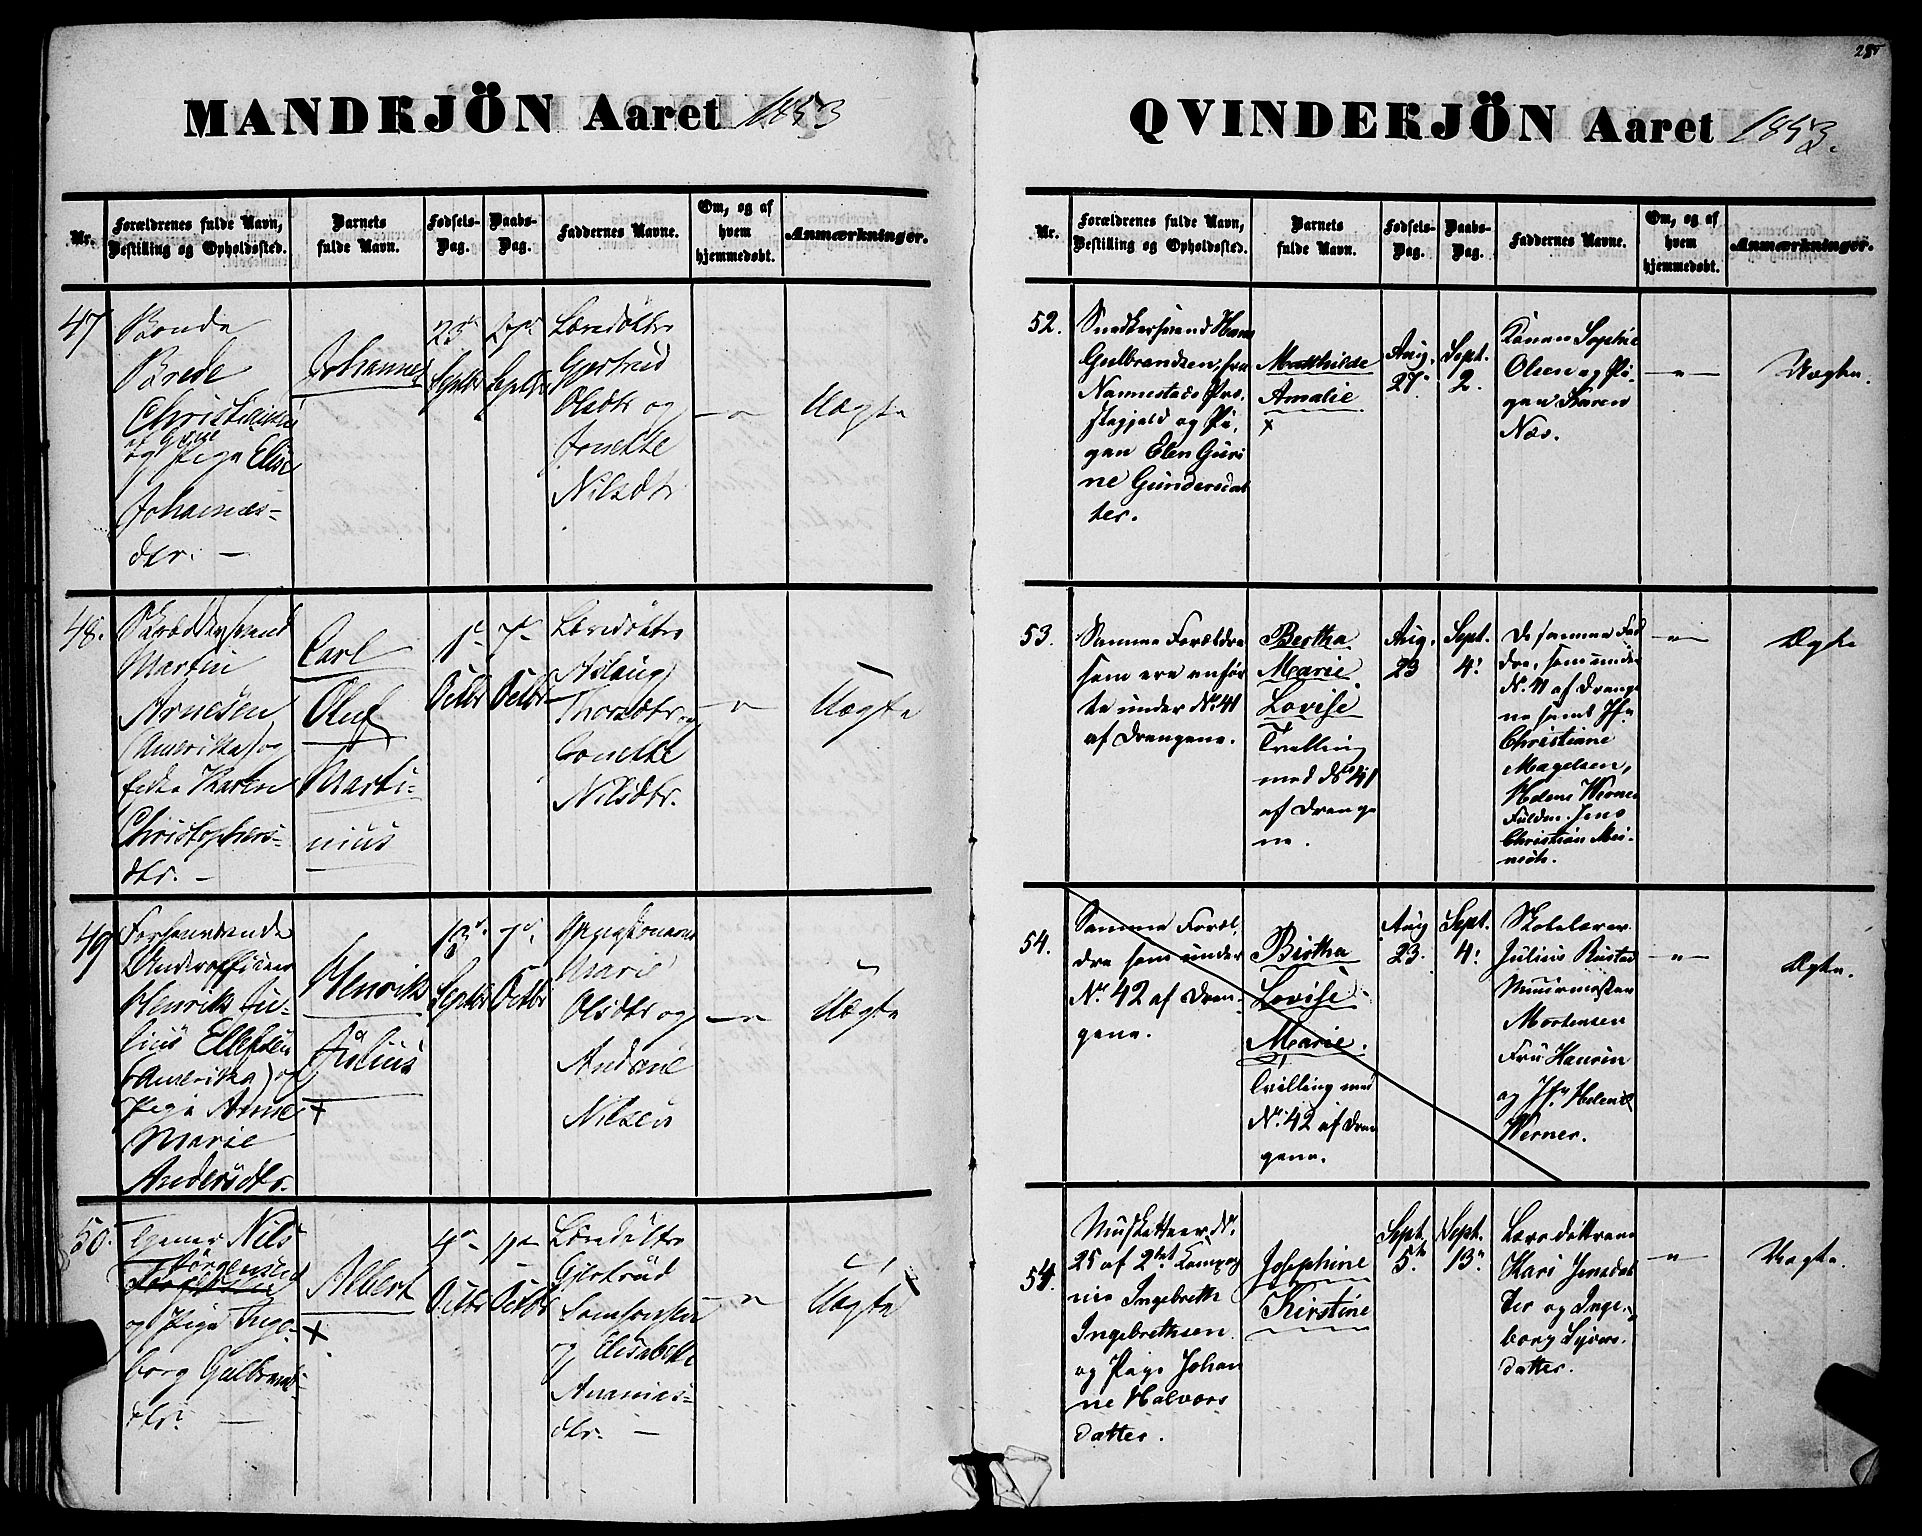 285
MANDKJÖN Aaret 1853
Nr.
Forældrenes fulde Navn,
Bestilling og Opholdssted.
Barnets
fulde Navn.
Fødsels-
Dag.
Daabs-
Dag.
Faddernes Navne.
Om, og af
hvem
hjemmedøbt.
Anmærkninger.
47
Bonde
Brede
Christiansen
og Pige Elise
Johannes-
dtr. —
Johannes
23de
Septbr
27de
Septbr
Læredøttre
Gjertrud
Olsdtr og
Jonette
Nilsdtr
—"—
Uægte
48.
Skræddersvend
Martin
Arnesen
(Amerika) og
Karen
Christophers-
dtr. —
Carl
Oluf
Marti-
nius
1ste
Octbr
7de
Octbr
Læredøttre
Aslaug
Thorsdtr og
Jonette
Nilsdtr.
—"—
Uægte
49
Forhenværende
Underofficeer
Henrik Ju-
lius Ellefsen
(Amerika) og
Pige Anne
Marie
Andersdtr.
Henrik
Julius
+
13de
Septbr
7de
Octbr
Marie
Olsdtr og
Andrine
Nilsen
—"—
Uægte
50.
Nils
Jörgensen
og Pige Inge-
borg Gulbrands-
dtr. —
Albert
+
4de
Octbr
Octbr
Læredøttre
Gjertrud
Samsonsen
og Elisabeth
Ananias-
dtr. —
—"—
Uægte
QVINDEKJÖN Aaret 1853.
Nr.
Forældrenes fulde Navn,
Bestilling og Opholdssted.
Barnets
fulde Navn.
Fødsels-
Dag.
Daabs-
Dag.
Faddernes Navne.
Om, og af
hvem
hjemmedøbt.
Anmærkninger.
52.
Snedkersvend Hans
Gulbrandsen, fra
Nannestads Præ-
stegjeld og Pi-
gen Elen Guri
ne Gundersdat
ter.
Mathilde
Amalie
+
Aug.
27.
Sept.
2.
Konen Sophie
Olsen og Pi-
gen Karen
Næs.
—"—
Uægte.
53.
Samme Forældre
som ere anför
te under No 41
af Drengene.
Bertha
Marie
Lovise
Tvilling
med No 41
af Drenge
ne.
Aug.
23
Sept.
4.
De samme Fad
dre, som under
No. 41 af Drenge
ne samt Jfr
Christiane
Magelsen,
Helene Werner
Fuldm. Jens
Christian Mei-
nich.
—"—
Ægte
54.
Samme Foræl-
dre som under
No. 42 af Dren-
gene.
Bertha
Lovise
Marie.
Tvilling med
No. 42 af Dren
gene.
Aug
23.
Sept.
4.
Skolelærer
Julius Rustad
Muurmester
Mortensen
Fru Hansen
og Jfr Helene
Werner.
—"—
Ægte.
54.
Musketteer No.
25 af 2det Compag
nie Ingebreth
Ingebrethsen
og Pige Johan
ne Halvors
datter.
Josephine
Kirstine
Sept.
5te
Sept.
13de
Læredöttrene
Kari Jensdat
ter og Inge-
borg Syvers-
datter.
—"—
Uægte.